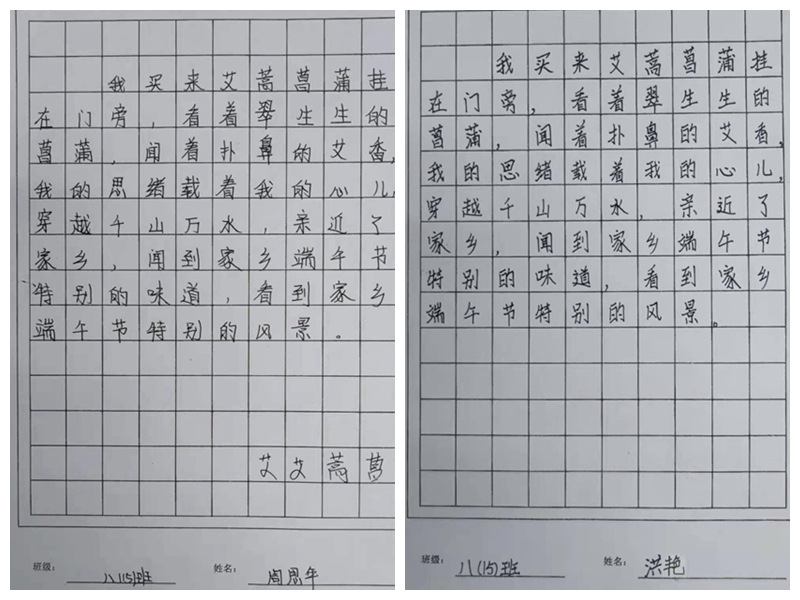 我买来艾蒿菖蒲挂
在门旁，看着翠生生的
菖蒲，闻着扑鼻的艾香，
我的思绪载着我的心儿，
穿越千山万水，亲近了
家乡，闻到家乡端午节
特别的味道，看到家乡
端午节特别的风景。
艾艾蒿菖
班级：八(15)班 姓名：周思年
我买来艾蒿菖蒲挂
在门旁，看着翠生生的
菖蒲，闻着扑鼻的艾香，
我的思绪载着我的心儿，
穿越千山万水，亲近了
家乡，闻到家乡端午节
特别的味道，看到家乡
端午节特别的风景。
班级：八(15)班 姓名：洪艳